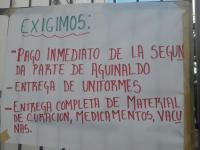 EXIGIMOS:
-PAGO INMEDIATO DE LA SEGUN
DA PARTE DE AGUINALDO
-ENTREGA DE UNIFORMES
-ENTREGA COMPLETA DE MATERIAL
DE CURACION, MEDICAMENTOS, VACU
NAS.